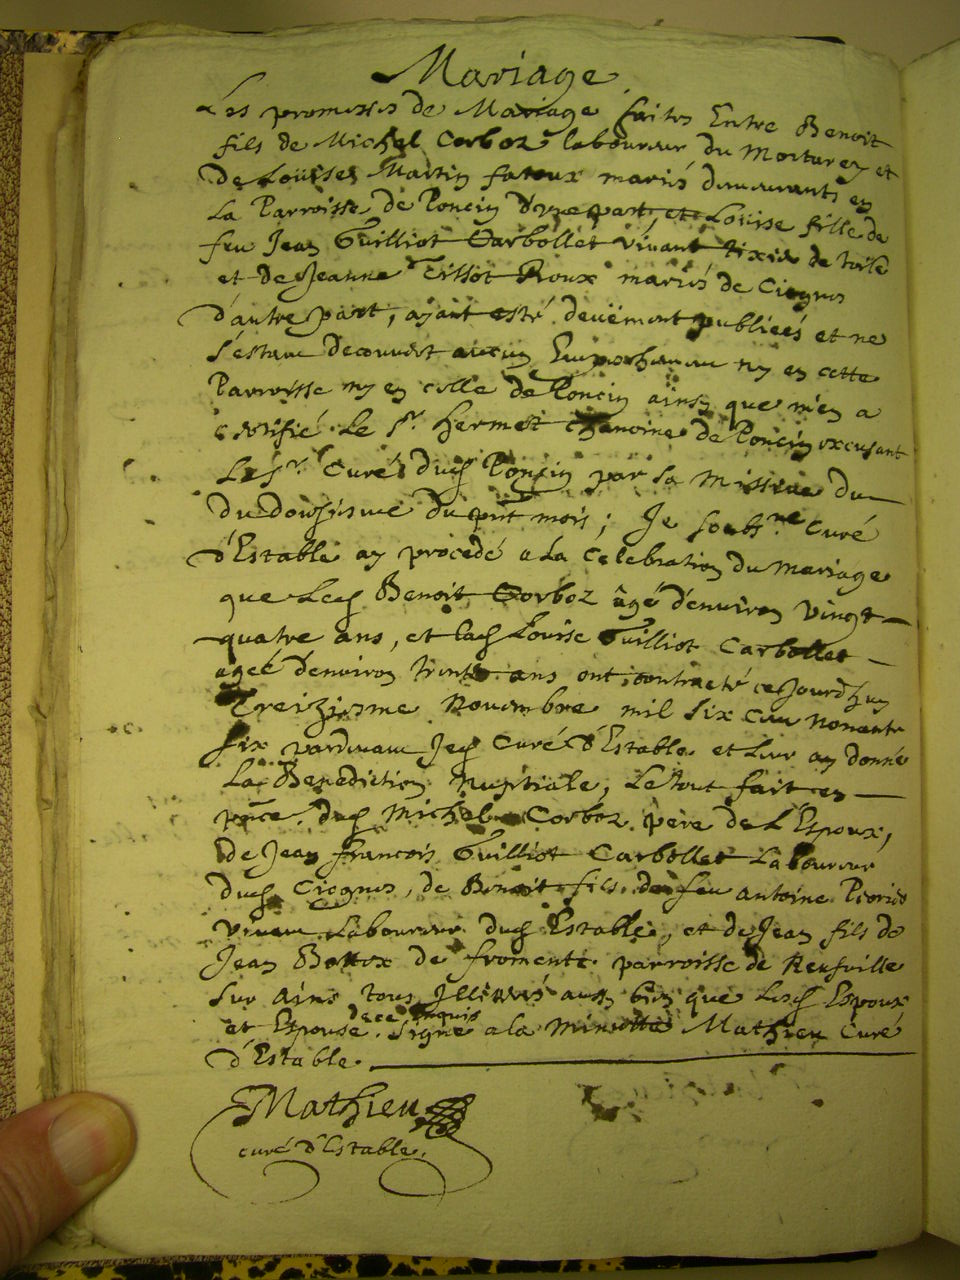 Mariage.
Les promesses de Mariage faites Entre Benoit
fils de Michel Corboz laboureur du Morturey et
De Louise Martin fateux mariés demeurants en
La Parroisse de Poncin D'une part, et Louise fille de
feu Jean Guilliot Carbollet vivant tixier de toile
et de Jeanne Tissot Roux mariés de Ciognes
d'autre part, ajant esté deüement publieés et ne
s'estant decouvert aucun Empechement ny en cette
Parroisse ny en celle de Poncin ainsy que m'en a
certifié Le Sr. hermet chanoine de Poncin excusant
Le Sr. Curé dud Poncin par sa missive du
du douziesme du pnt mois ; Je soubs.ne Curé
d'Estable ay procedé a La Celebration du Mariage
que Led Benoit Corboz âgé d'environ vingt
quatre ans, et lad Louise Guilliot Carbollet
agéé d'environ trente ans ont contracté cejourd'huy
Treiziesme Novembre mil six cent nonante
six pardevant Jed Curé d'Estable et Leur ay donné
La Benediction Nuptiale, Le tout fait en
pnce. dud Michel Corboz pere de L'Espoux,
de Jean francois Guilliot Carbollet Laboureur
dud Ciognes, de Benoit fils de feu Antoine
vivant Laboureur dud Estable, et de Jean fils de
Jean Bottex de fromente parroisse de Neufville
sur ains tous Illitterés aussy bien que Lesd Espoux
et Espouse de ce enquis Signé a la minutte Mathieu Curé
d'Estable.
Mathieu
curé d'Estable.